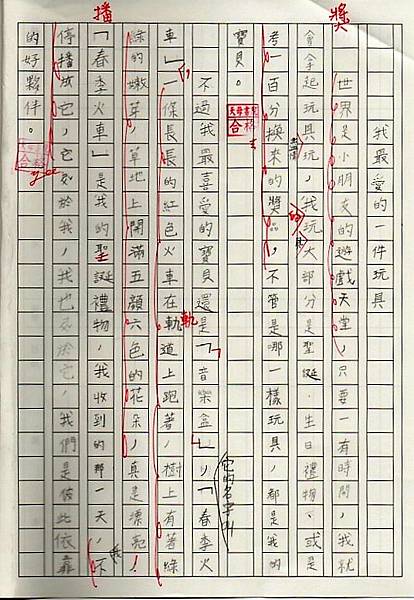 我最愛的一件玩具
世界是小朋友的遊戲天堂,只要一有時間,我就
會拿起玩具玩,我玩大部分是聖誕、生日禮物、或是
考一百分換來的獎品,不管是哪一樣玩具,都是我的
寶貝。
不過我最喜愛的寶貝還是「音樂盒」,「春季火
車」一條長長的紅色火車在軌道上跑著,樹上有著綠
綠的嫩芽草地上開滿五顏六色的花朵,真是漂亮!
「春季火車」是我的聖誕禮物,我收到的那一天,不
停播放它,它忠於我,我也忠於它,我們是彼此依靠
的好夥伴。
獎
的
具
合格
它的名字叫
軌
我
播
合格